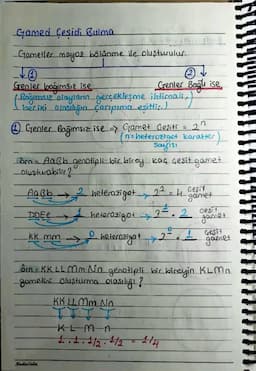 Gamet Çeşidi Bulma
Gametler mayoz bölünme ile oluşturulur.
① ②
Genler bağımsız ise Genler Bağlı ise
(Bağımsız olayların gerçekleşme ihtimali,
ayrı olasılığın çarpıma eşittir.)
① Genler Bağımsız ise → Gamet Çeşiti = 2ⁿ
(n = heterozigot karakter)
sayısı
Örn = AaBb genotipli bir birey kaç çeşit gamet
oluşturabilir?
AaBb → 2 heterozigot → 2² = 4 çeşit gamet
DDEe → 1 heterozigot → 2¹ = 2 çeşit gamet
KK mm → 0 heterozigot → 2⁰ = 1 çeşit gamet
Örn = KK LL Mm Nn genotipli bir bireyin KLMn
gametini oluşturma olasılığı?
KK LL Mm Nn
K L M n
1 . 1 . 1/2 . 1/2 = 1/4